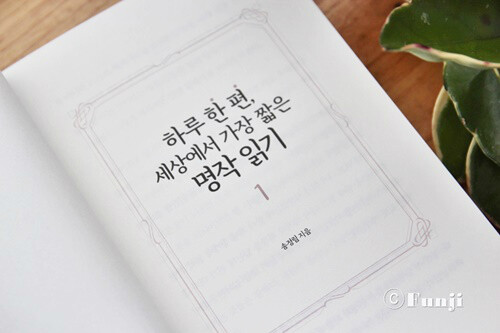 하루 한 편,
세상에서 가장 짧은
명작 읽기
1
송정림 지음
©Funji